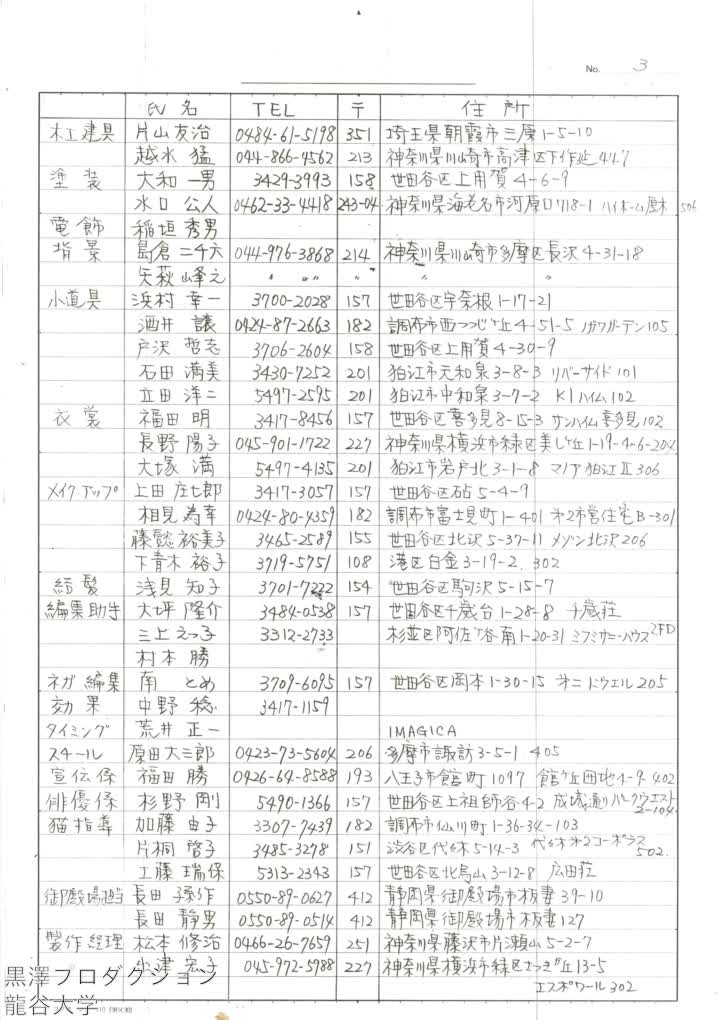 No. 3
氏名 TEL 〒 住所
木工建具 片山友治 0484-61-5198 351 埼玉県朝霞市三原1-5-10
越水 猛 044-866-4562 213 神奈川県川崎市高津区下作延447
塗装 大和一男 3429-3993 158 世田谷区上用賀4-6-9
水口公人 0462-33-4418 243-04 神奈川県海老名市河原口718-1 ハイホーム厚木 506
電飾 稲垣秀男
背景 島倉二千六 044-976-3868 214 神奈川県川崎市多摩区長沢4-31-18
矢萩峰之 〃 〃 〃 〃 〃
小道具 浜村幸一 3700-2028 157 世田谷区宇奈根1-17-21
酒井 譲 0424-87-2663 182 調布市西つつじヶ丘4-51-5 105
戸沢哲志 3706-2604 158 世田谷区上用賀4-30-9
石田満美 3430-7252 201 狛江市元和泉3-8-3 リバーサイド101
立田洋二 5497-2595 201 狛江市中和泉3-7-2 K1ハイム102
衣裳 福田 明 3417-8456 157 世田谷区喜多見8-15-3 サンハイム喜多見102
長野陽子 045-901-1722 227 神奈川県横浜市緑区美しヶ丘1-19-4-6-204
大塚 満 5497-4135 201 狛江市岩戸北3-1-8 マノア狛江II306
メイクアップ 上田庄七郎 3417-3057 157 世田谷区砧5-4-9
相見為幸 0424-80-4359 182 調布市富士見町1-401 第2市営住宅B-301
裕美子 3465-2589 155 世田谷区北沢5-37-11 メゾン北沢206
下青木裕子 3719-5751 108 港区白金3-19-2, 302
結髪 浅見知子 3701-7222 154 世田谷区駒沢5-15-7
編集助手 大坪隆介 3484-0538 157 世田谷区千歳台1-28-8 千歳荘
三上えつ子 3312-2733 杉並区阿佐ヶ谷南1-20-31
村本 勝
ネガ編集 南 とめ 3709-6095 157 世田谷区岡本1-30-15 第二ドウエル205
効果 中野 稔 3417-1159
タイミング 荒井正一 IMAGICA
スチール 原田大三郎 0423-73-5604 206 多摩市諏訪3-5-1 405
宣伝係 福田 勝 0426-64-8588 193 八王子市館町1097 館ヶ丘団地1-9-402
俳優係 杉野 剛 5490-1366 157 世田谷区上祖師谷4-2 成城通りパークウエスト
2-104
猫指導 加藤由子 3307-7439 182 調布市仙川町1-36-34-103
片桐啓子 3485-3278 151 渋谷区代々木5-14-3 代々木第2コーポラス
502
工藤瑞保 5313-2343 157 世田谷区北烏山3-12-8 広田荘
御殿場担当 長田孫作 0550-89-0627 412 静岡県御殿場市板妻39-10
長田静男 0550-89-0514 412 静岡県御殿場市板妻127
製作経理 松本修治 0466-26-7659 251 神奈川県藤沢市片瀬山5-2-7
小津宏子 045-972-5988 227 神奈川県横浜市緑区さつきが丘13-5
エスポワール302
黒澤プロダクション
龍谷大学